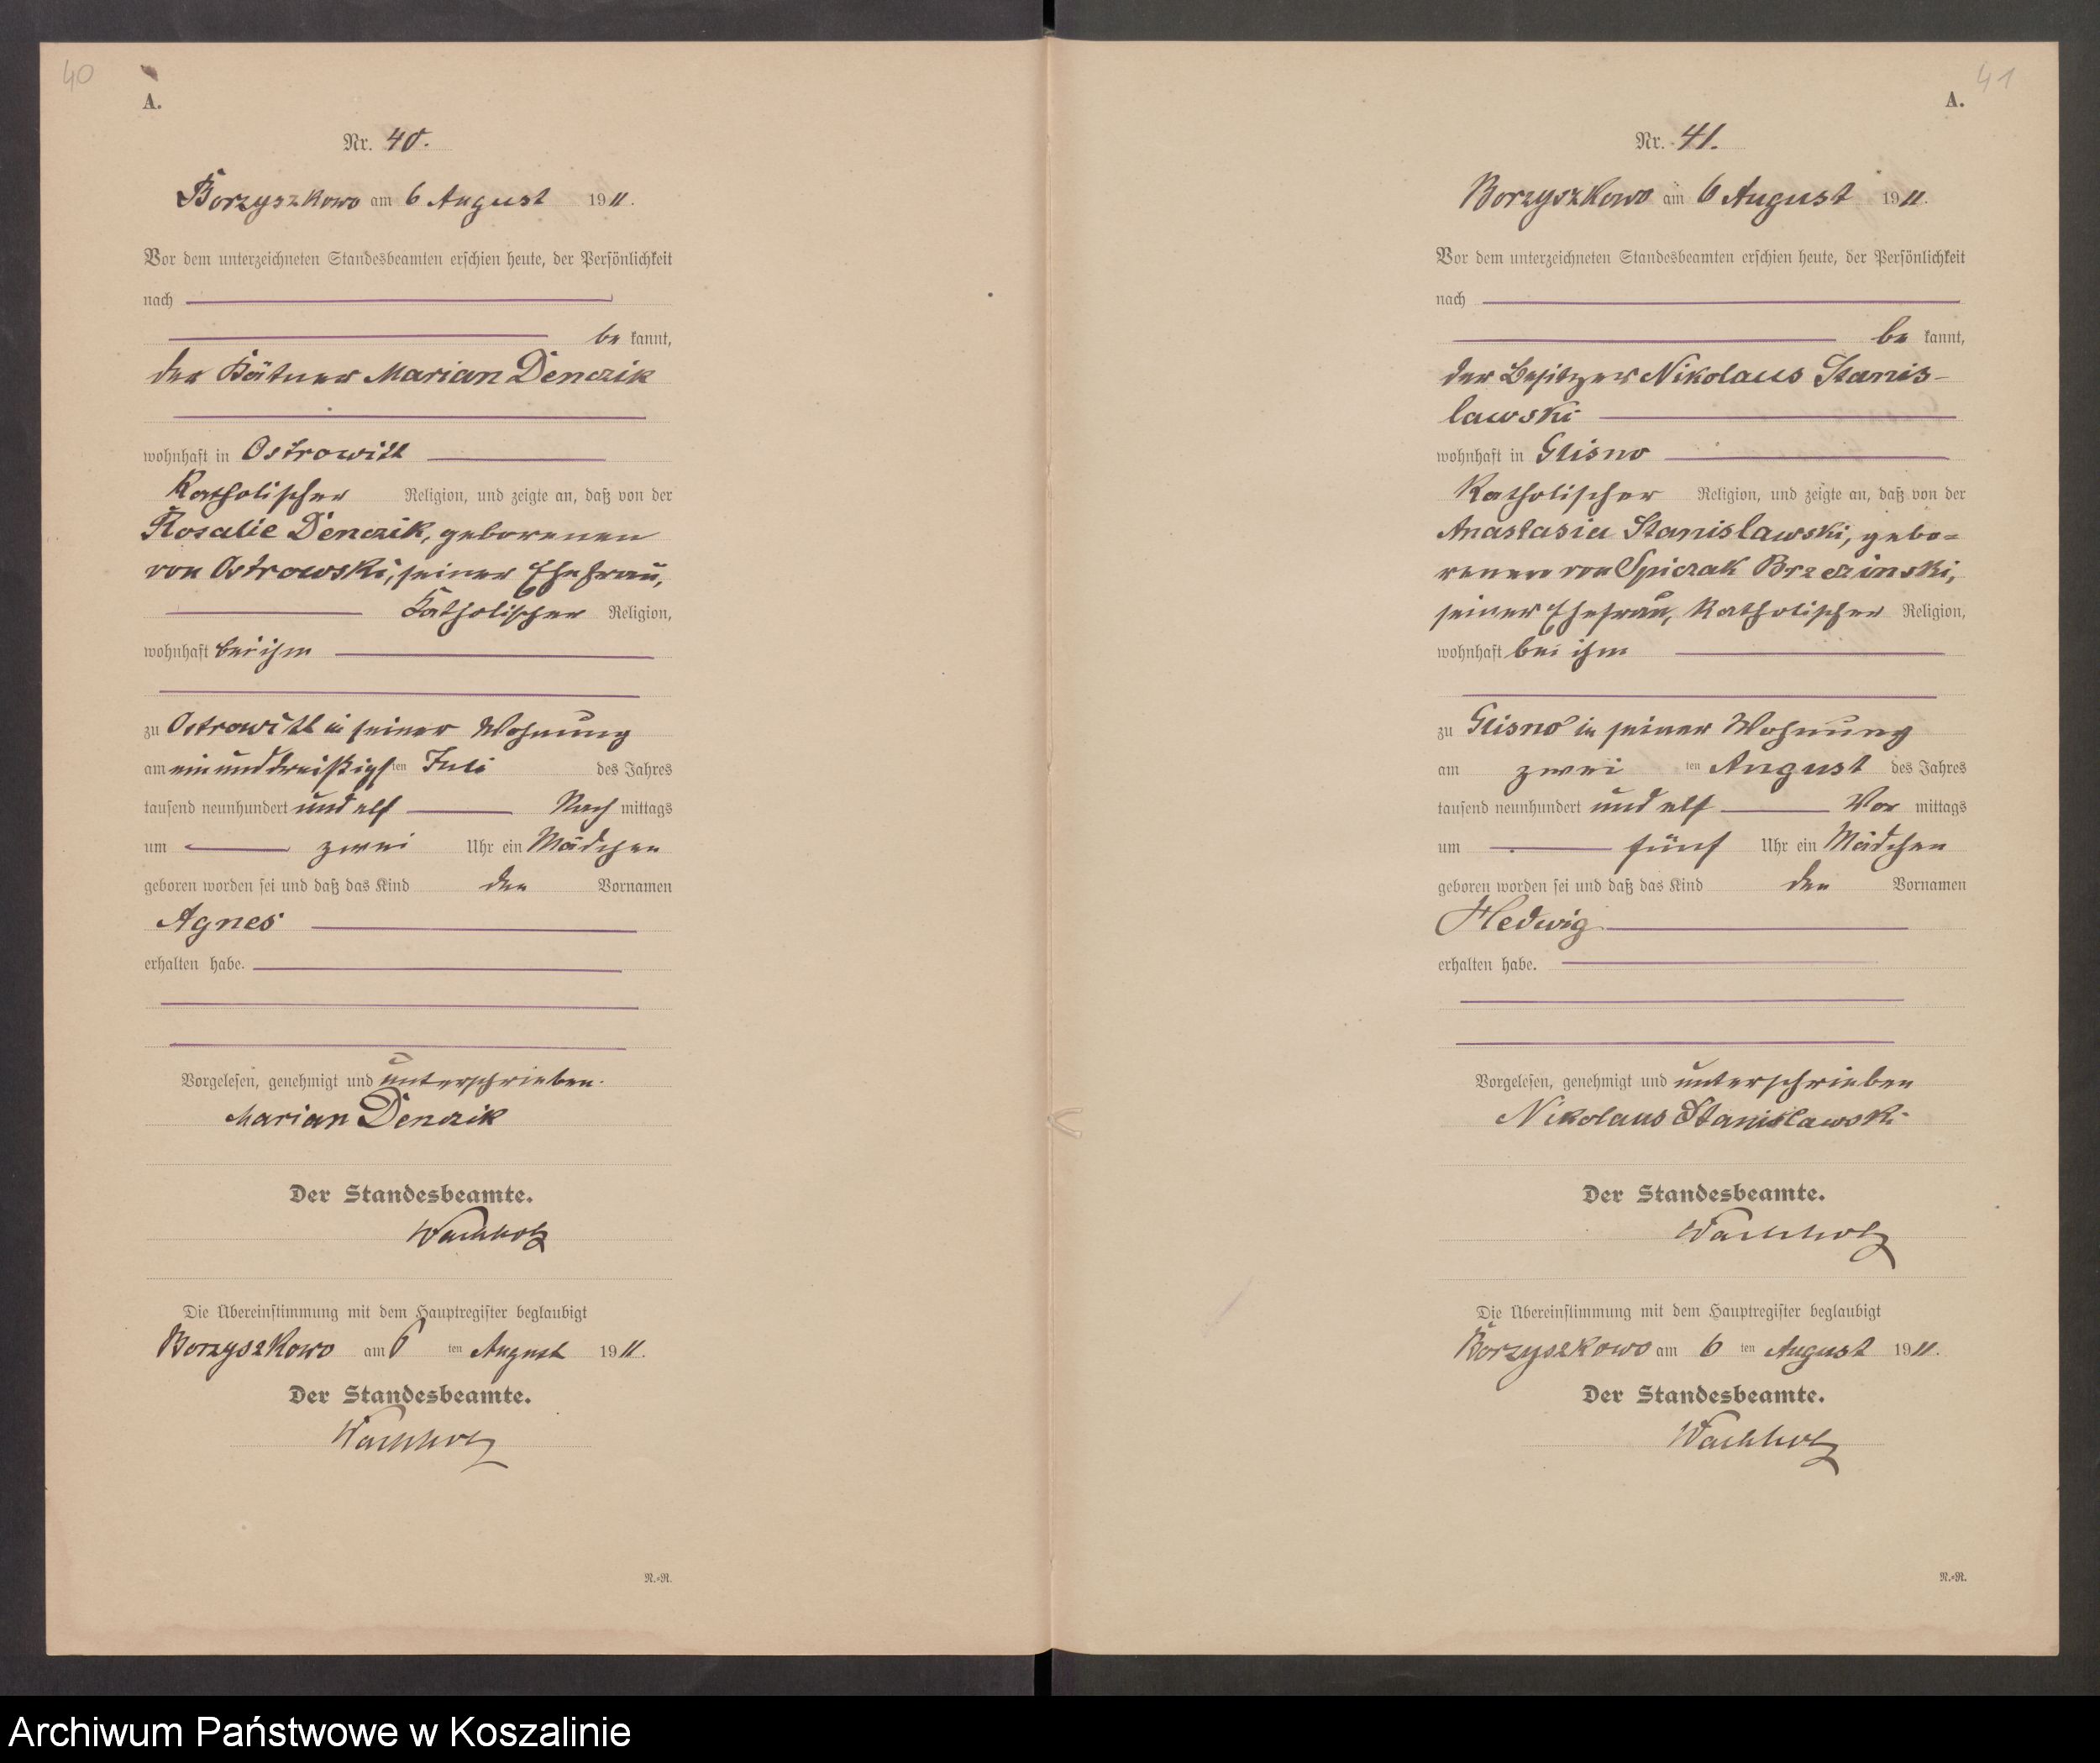 40
A.
Nr. 40.
Borzyszkowo am 6 August 1911.
Vor dem unterzeichneten Standesbeamten erschien heute, der Persönlichkeit
nach
be kannt,
der Kätner Marian Denczik
wohnhaft in Ostrowitt
Katholischer Religion, und zeigte an, daß von der
Rosalie Denczik, geborenen
von Ostrowski, seiner Ehefrau,
Katholischer Religion,
wohnhaft bei ihm
zu Ostrowitt in seiner Wohnung
am einunddreißigs ten Juli des Jahres
tausend neunhundert und elf Nach mittags
um zwei Uhr ein Mädchen
geboren worden sei und daß das Kind den Vornamen
Agnes
erhalten habe.
Vorgelesen, genehmigt und unterschrieben.
Marian Denczik
Der Standesbeamte.
Wachholz
Die Übereinstimmung mit dem Hauptregister beglaubigt
Borzyszkowo am 6 ten August 1911.
Der Standesbeamte.
Wachholz
N.=N.
41
A.
Nr. 41.
Borzyszkowo am 6 August 1911.
Vor dem unterzeichneten Standesbeamten erschien heute, der Persönlichkeit
nach
be kannt,
der Besitzer Nikolaus Stanis-
lawski
wohnhaft in Glisno
Katholischer Religion, und zeigte an, daß von der
Anastasia Stanislawski, gebo=
renen von Spiczak Brzezinski,
seiner Ehefrau, Katholischer Religion,
wohnhaft bei ihm
zu Glisno in seiner Wohnung
am zwei ten August des Jahres
tausend neunhundert und elf Vor mittags
um fünf Uhr ein Mädchen
geboren worden sei und daß das Kind den Vornamen
Hedwig
erhalten habe.
Vorgelesen, genehmigt und unterschrieben
Nikolaus Stanislawski
Der Standesbeamte.
Wachholz
Die Übereinstimmung mit dem Hauptregister beglaubigt
Borzyszkowo am 6 ten August 1911.
Der Standesbeamte.
Wachholz
N.=N.
Archiwum Państwowe w Koszalinie